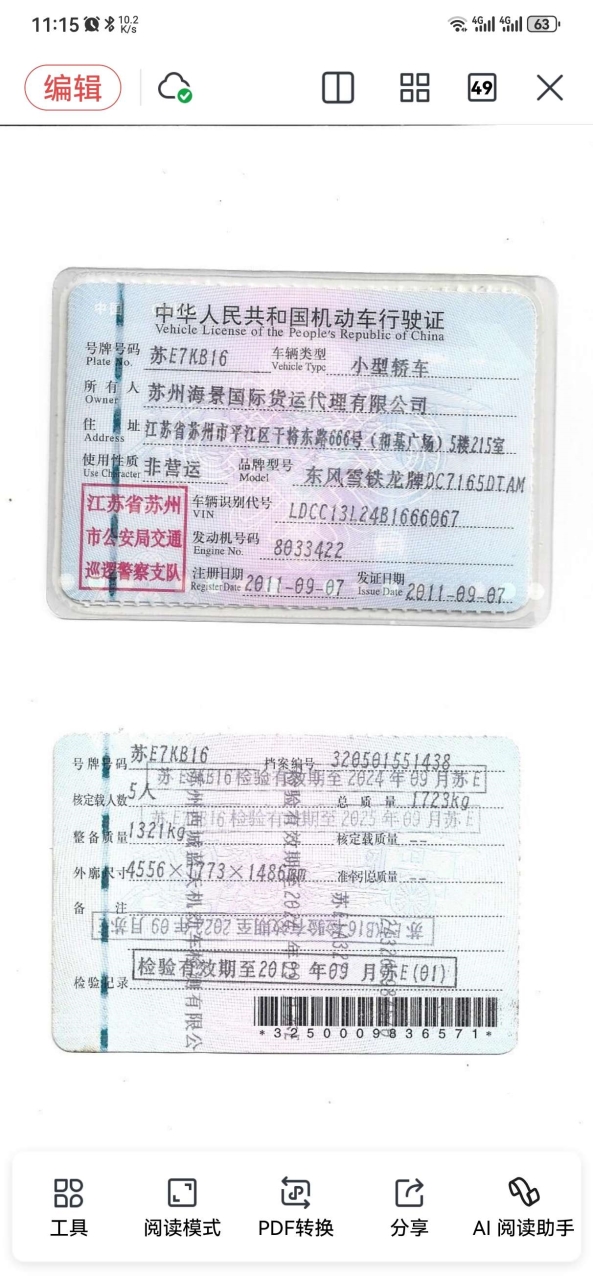 11:15 10.2 K/s 4G 4G 63
编辑 49
中华人民共和国机动车行驶证
Vehicle License of the People's Republic of China
号牌号码 苏E7KB16 车辆类型 小型轿车
Plate No. Vehicle Type
所有人 苏州海景国际货运代理有限公司
Owner
住址 江苏省苏州市平江区干将东路666号（和基广场）5楼215室
Address
使用性质 非营运 品牌型号 东风雪铁龙牌DC7165DTAM
Use Character Model
江苏省苏州
市公安局交通
巡逻警察支队
车辆识别代号 LDCC13L24B1666067
VIN
发动机号码 8033422
Engine No.
注册日期 2011-09-07 发证日期 2011-09-07
Register Date Issue Date
号牌号码 苏E7KB16 档案编号 320501551438
苏E7KB16检验有效期至2024年09月苏E
核定载人数 5人 总质量 1723kg
苏E7KB16检验有效期至2025年09月苏E
整备质量 1321kg 核定载质量 --
外廓尺寸 4556×1773×1486mm 准牵引总质量 --
备注
检验记录 检验有效期至2013年09月苏E(01)
*3250009836571*
工具 阅读模式 PDF转换 分享 AI 阅读助手